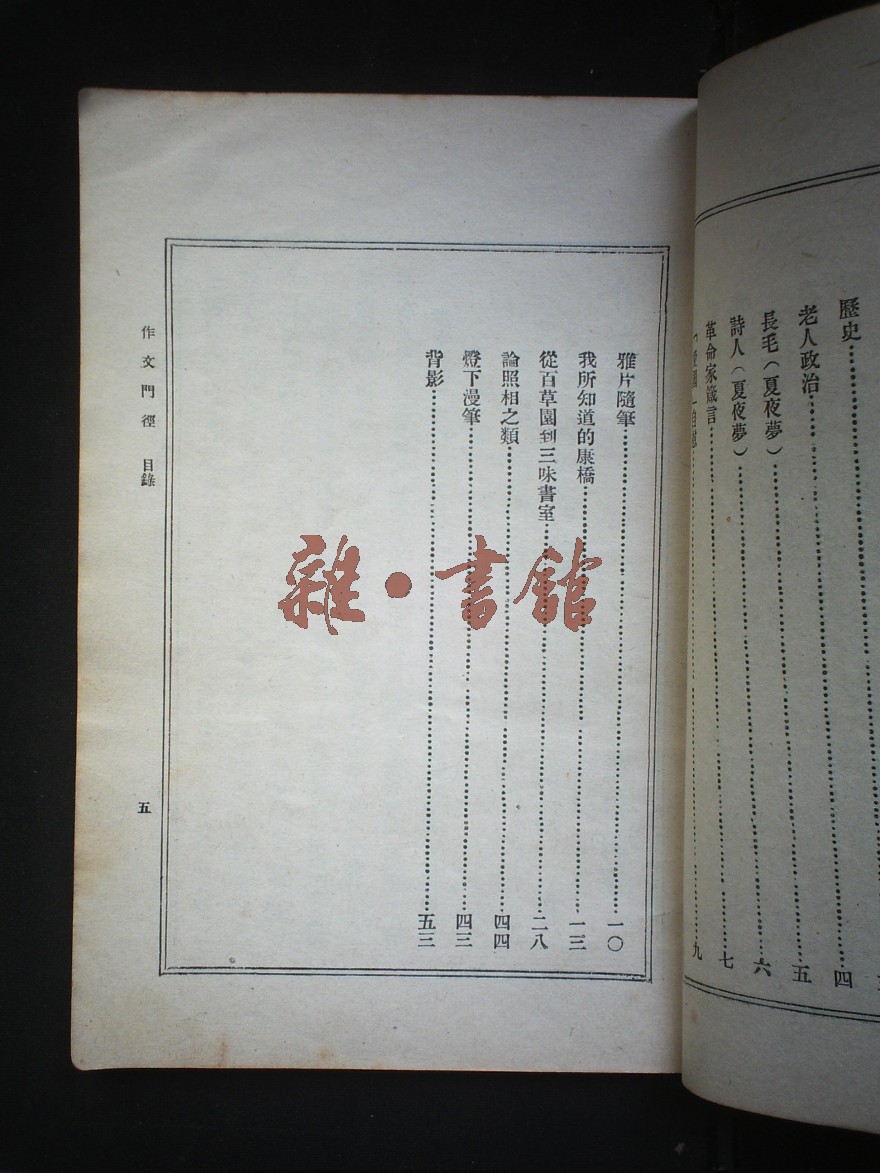 歷史 四
老人政治 五
長毛（夏夜夢） 六
詩人（夏夜夢） 七
革命家箴言 九
雅片隨筆 一〇
我所知道的康橋 一三
從百草園到三味書室 二八
論照相之類 四四
燈下漫筆 四三
背影 五三
作文門徑 目錄
五
雜·書館